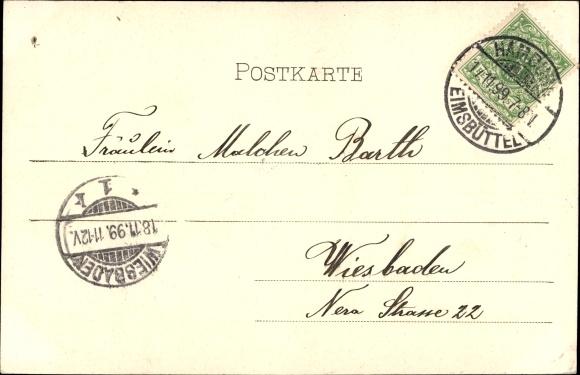 POSTKARTE
HAMBURG
17.11.99. 7-8 N.
EIMSBÜTTEL
Fräulein Malchen Barth
* 1 k
18.11.99. 11-12V.
WIESBADEN
Wiesbaden
Nero Strasse 22